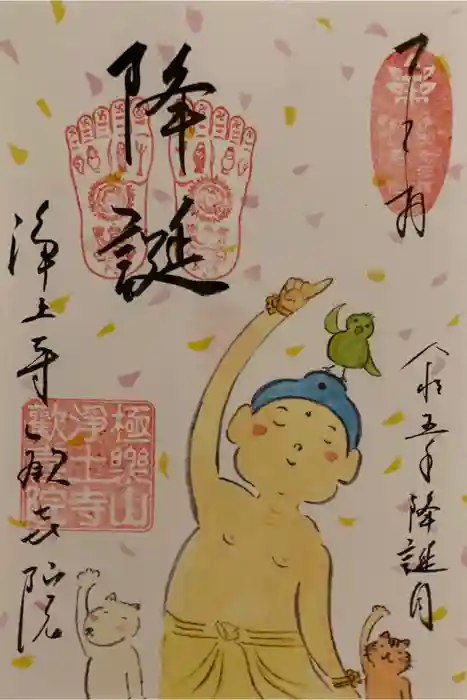 降誕
令和五年降誕月
浄土寺 歓喜院
極樂山
淨土寺
歡喜院